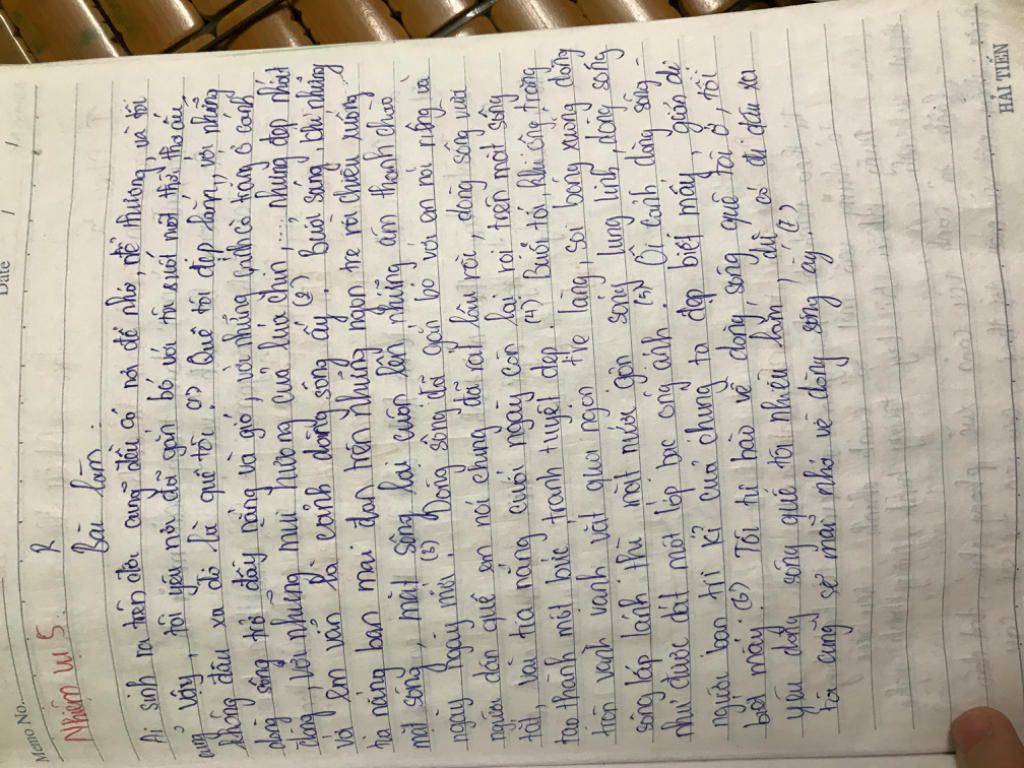 Memo No. Date / /
Nhiệm vụ 5: R
Bài làm.
Ai sinh ra trên đời cũng đều có nơi để nhớ, để thương, và tôi
cũng vậy, tôi yêu nơi đã gắn bó với tôi suốt một thời thơ ấu,
không đâu xa đó là quê tôi. (1) Quê tôi đẹp lắm, với những
dòng sông trở đầy nắng và gió, và những cánh cò trắng ở cánh
đồng, với những mùi hương của lúa chín,.... nhưng đẹp nhất
với em vẫn là cảnh dòng sông ấy. (2) Buổi sáng, khi những
tia nắng ban mai đan trên những ngọn tre rồi chiếu xuống
mặt sông, mặt sông lại cuộn lên những ấn thanh chào
ngày mới. (3) Dòng sông đã gắn bó với em nói riêng và
người dân quê em nói chung đã rất lâu rồi, dòng sông vui
tươi, vài tia nắng cuối ngày còn lại rơi trên mặt sông
tạo thành một bức tranh tuyệt đẹp. (4) Buổi tối khi ông trăng
tròn vành vạnh vắt qua ngọn tre làng, soi bóng xuống dòng
sông lấp lánh thì một mới gợn sóng lung linh, dòng sông
như được dát một lớp bạc óng ánh. (5) Ôi cảnh dòng sông -
người bạn tri kỉ của chúng ta đẹp biết mấy, giản dị
biết mấy. (6) Tôi tự hào về dòng sông quê tôi ở, tôi
yêu dòng sông quê tôi nhiều lắm, dù có đi đâu xa
tôi cũng sẽ mãi nhớ về dòng sông ấy. (7)
HẢI TIẾN